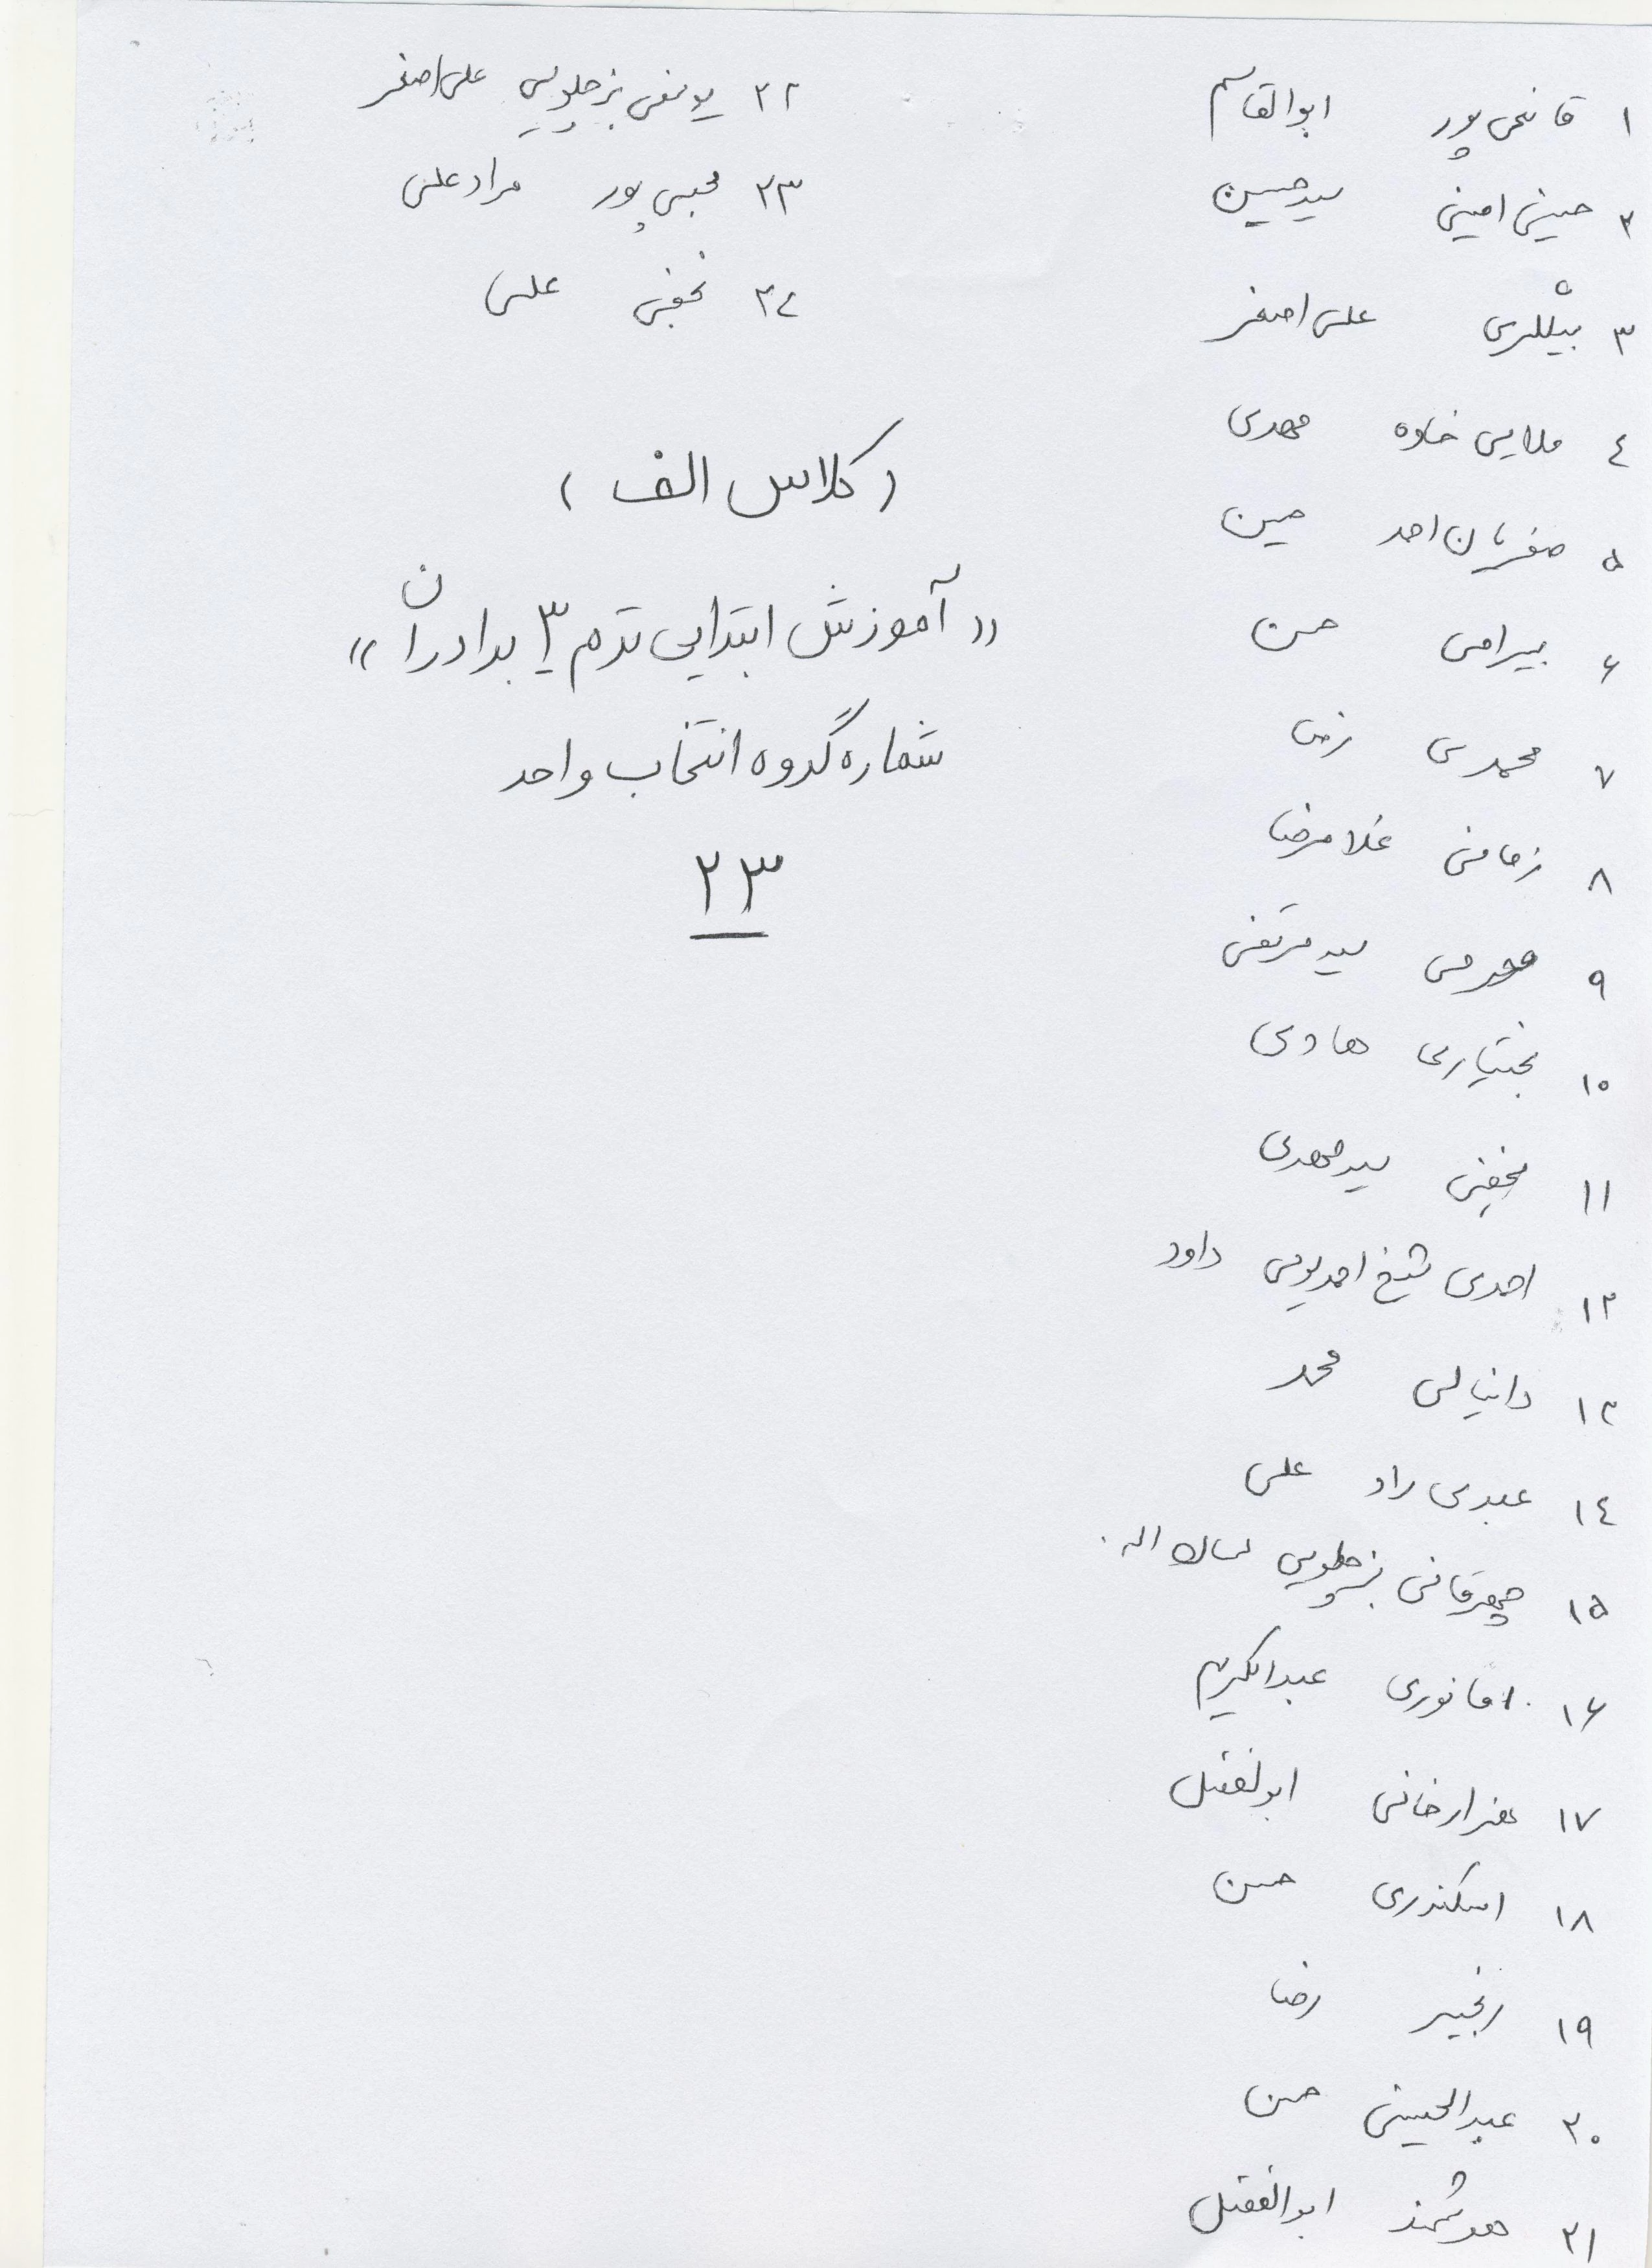 ۱ قاضی پور ابوالقاسم
۲ حسینی امینی سید حسین
۳ بیگلری علی اصغر
۴ ملایی خاوه مهدی
۵ صفریان احد حسین
۶ بیرامی حسن
۷ محمدی رضا
۸ زمانی غلامرضا
۹ محرمی سید مرتضی
۱۰ بختیاری هادی
۱۱ نجفی سید مهدی
۱۲ احدی شیخ احمدیوسی داود
۱۳ دانیالی محمد
۱۴ عبدی راد علی
۱۵ چهرقانی بزچلویی اله
۱۶ اقانوری عبدالکریم
۱۷ هزارخانی ابولفضل
۱۸ اسکندری حسن
۱۹ رنجبر رضا
۲۰ عبدالحسینی حسن
۲۱ هوشمند ابوالفضل
۲۲ یوسفی بزچلویی علی اصغر
۲۳ محبی پور مرادعلی
۲۴ نجفی علی
( کلاس الف )
« آموزش ابتدایی ترم ۳ برادران »
شماره گروه انتخاب واحد
۲۳